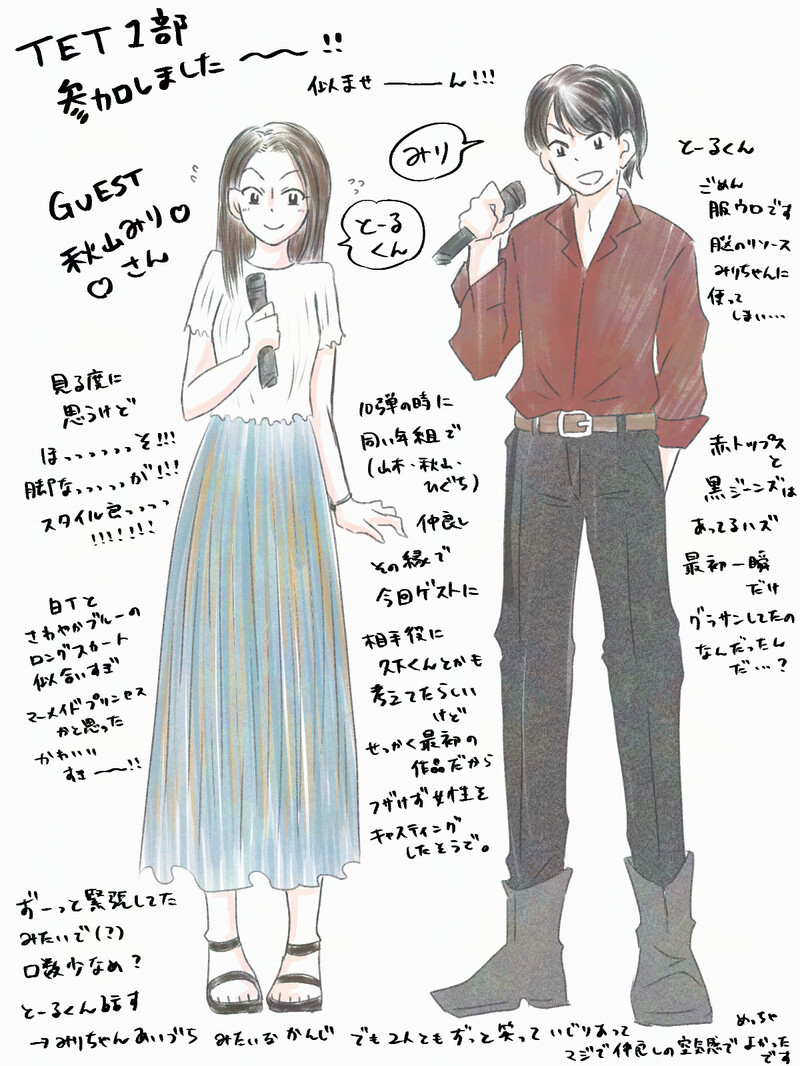 TET 1部
参加しました〜〜!!
似ませ——ん!!!
GUEST
秋山みり♡
♡さん
みり
とーる
くん
とーるくん
ごめん
服ウロです
脳のリソース
みりちゃんに
使って
しまい…
見る度に
思うけど
ほっっっっっっそ!!!
脚なっっっっが!!!
スタイル良っっっっ
!!!!!!!
白Tと
さわやかブルーの
ロングスカート
似合いすぎ
マーメイドプリンセス
かと思った
かわいい
すき——!!
10弾の時に
同い年組で
(山木・秋山・
ひぐち)
仲良し
その縁で
今回ゲストに
相手役に
久下くんとかも
考えてたらしい
けど
せっかく最初の
作品だから
フザけず女性を
キャスティング
したそうで。
赤トップス
と
黒ジーンズは
あってるハズ
最初一瞬
だけ
グラサンしてたの
なんだったん
だ…?
ずーっと緊張してた
みたいで(?)
口数少なめ?
とーるくん話す
→みりちゃんあいづち みたいなかんじ でも2人ともずっと笑っていじりあって
マジで仲良しの空気感でめっちゃよかった
です